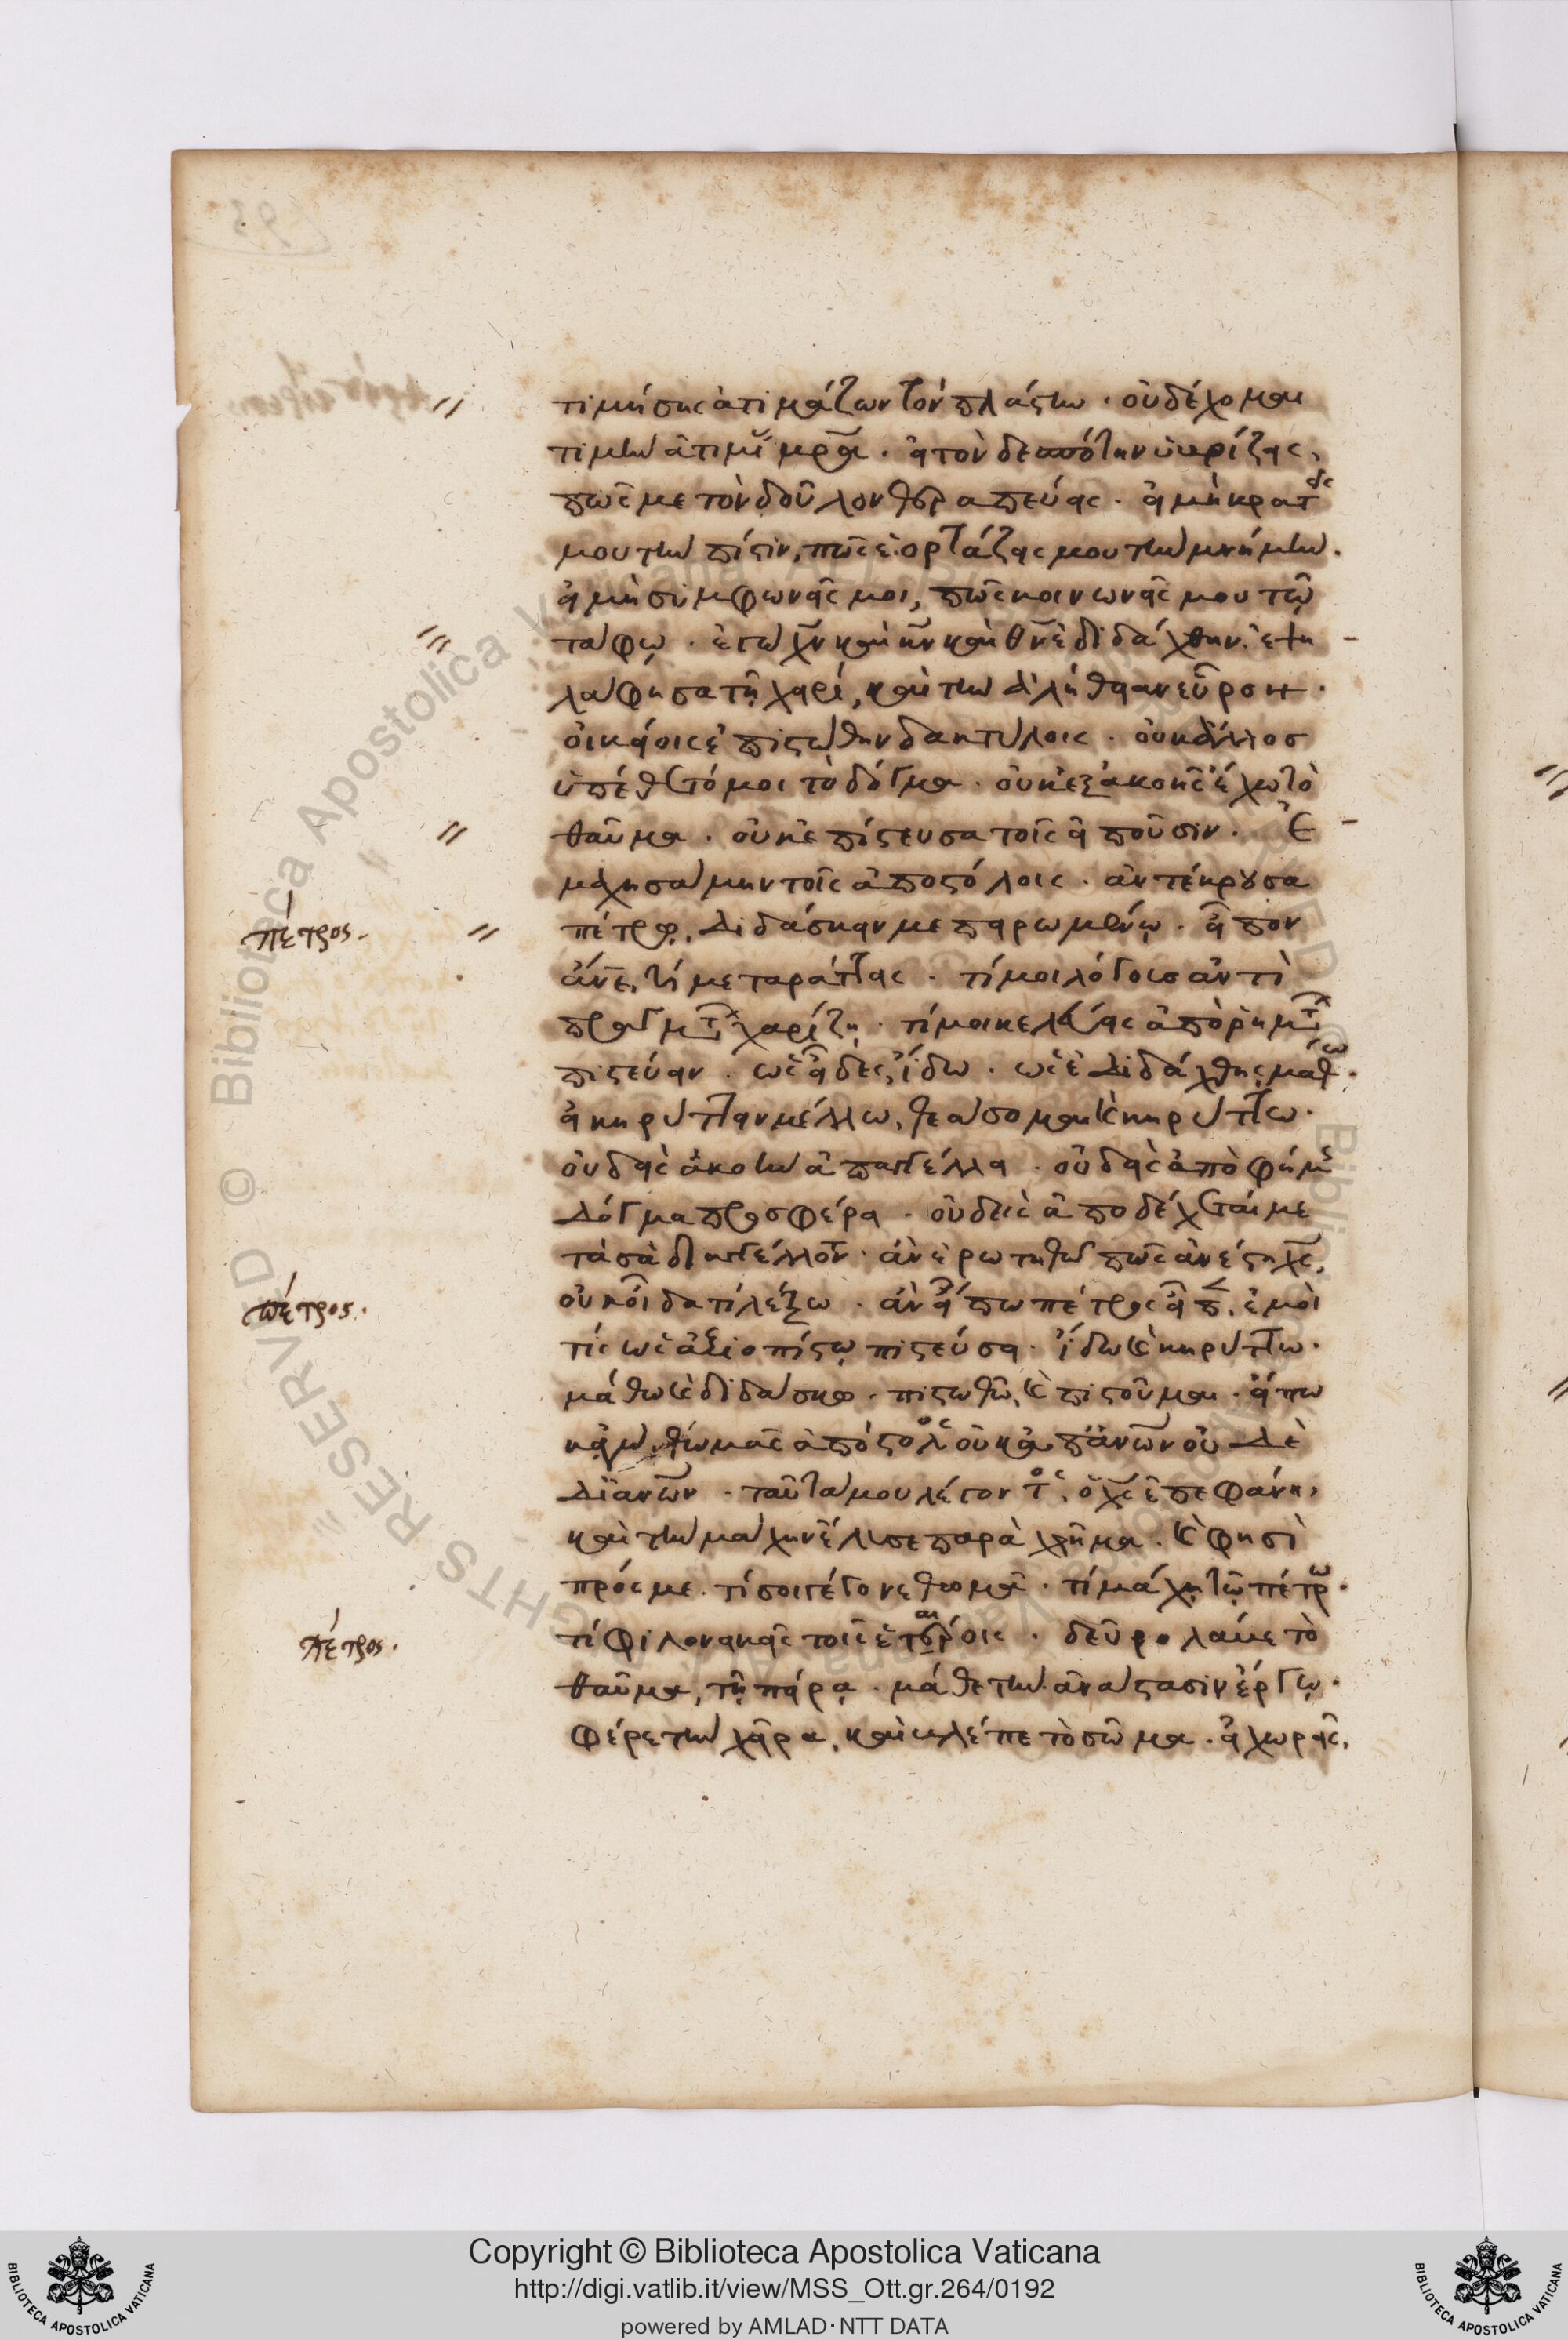 τιμήσης ἀτιμάζων τὸν πλάστην · οὐ δέχομαι
τιμὴν ἀτιμί μρᾶ · εἰ τὸν δεσπότην ὑβρίζεις,
πῶς με τὸν δοῦλον θεραπεύεις · εἰ μὴ κρατεῖς
μου τὴν πίστιν, πῶς ἑορτάζεις μου τὴν μνήμην.
εἰ μὴ συμφωνεῖς μοι, πῶς κοινωνεῖς μου τῷ
τάφῳ · ἐγὼ χ̅ν καὶ κ̅ν καὶ θ̅ν ἐδιδάχθην. ἐψη
λάφησα τῇ χειρί, καὶ τὴν ἀλήθειαν εὗρον.
οἰκείοις ἐπιστώθην δακτύλοις · οὐκ ἄλλος
ὑπέθετό μοι τὸ δόγμα · οὐκ ἐξ ἀκοῆς ἔχω τὸ
θαῦμα · οὐκ ἐπίστευσα τοῖς εἰποῦσιν. Ἐ
μαχησάμην τοῖς ἀποστόλοις · ἀντέκρουσα
πέτρῳ, διδάσκειν με πειρωμένῳ · εἶπον
ἄνες, τί με ταράττεις · τί μοι λόγους ἀντὶ
πραγμάτ χαρίζῃ · τί μοι κελεύεις ἀπὸ ῥημάτ
πιστεύειν · ὡς εἶδες, ἴδω · ὡς ἐδιδάχθης, μάθω.
εἰ κηρύττειν μέλλω, θεάσομαι καὶ κηρύττω.
οὐδεὶς ἀκοὴν ἀπαγγέλλει · οὐδεὶς ἀπὸ φήμης
δόγμα προσφέρει · οὐδεὶς ἀποδέχεταί με
τὰ σὰ διαγγέλλοντα · ἂν ἐρωτηθῶ πῶς ἀνέστη χ̅ς,
οὐκ οἶδα τί λέξω · ἂν εἴπω πέτρος εἶπε, ἐμοὶ
τίς ὡς ἀξιοπίστῳ πιστεύσει · ἴδω καὶ κηρύττω.
μάθω καὶ διδάσκω · πιστωθῶ, καὶ πιστοῦμαι · εἴπω
κἀγὼ, θωμᾶς ἀπόστολος οὐκ ἀπ᾽ ἀνων οὐδὲ
δι᾽ ἀνων · ταῦτά μου λέγοντος, ὁ χ̅ς ἐπεφάνη,
καὶ τὴν μάχην ἔλυσε παραχρῆμα. καὶ φησὶ
πρός με. τί σοι γέγονε θωμᾶ · τί μάχῃ τῷ πέτρῳ.
τί φιλονεικεῖς τοῖς ἑταίροις · δεῦρο λάβε τὸ
θαῦμα, τῇ πείρᾳ · μάθε τὴν ἀνάστασιν ἔργῳ.
φέρε τὴν χεῖρα, καὶ βλέπε τὸ σῶμα · εἰ χωρεῖς,
πέτρος.
πέτρος.
πέτρος.
Copyright © Biblioteca Apostolica Vaticana
http://digi.vatlib.it/view/MSS_Ott.gr.264/0192
powered by AMLAD·NTT DATA
BIBLIOTECA APOSTOLICA VATICANA
BIBLIOTECA APOSTOLICA VATICANA